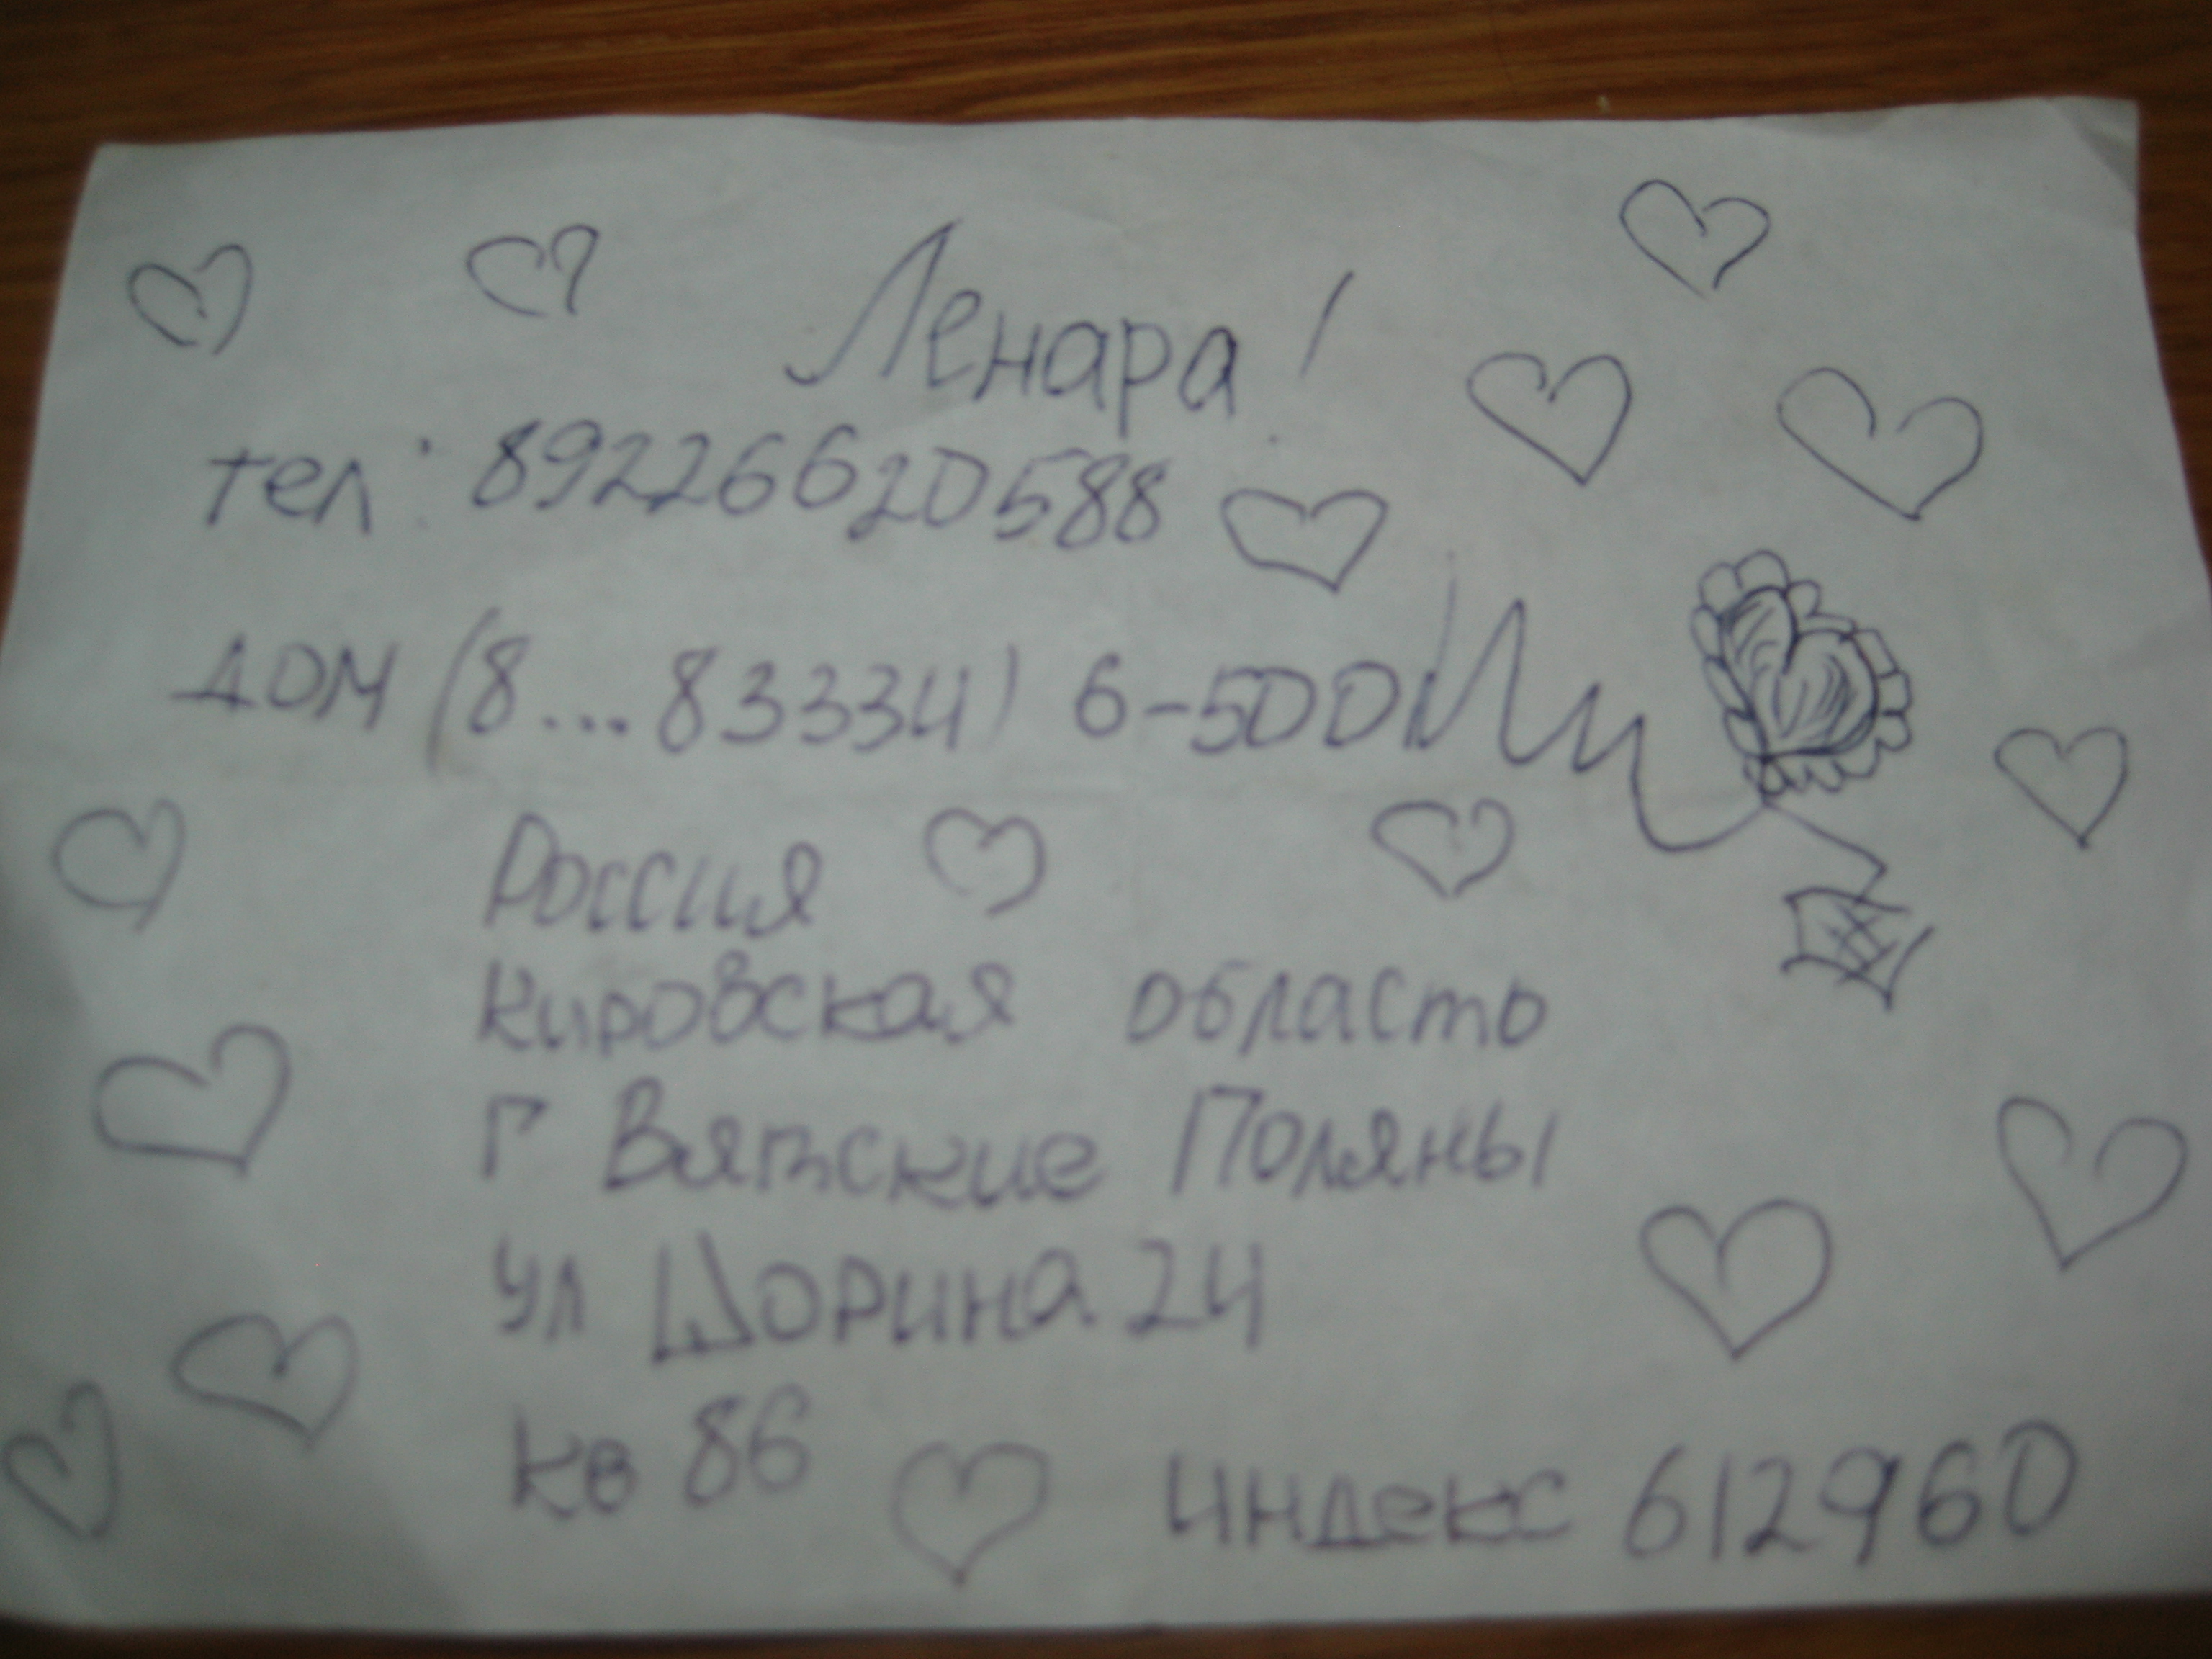 Ленара!
тел: 89226620588
дом (8...83334) 6-500
Россия
Кировская область
г Вятские Поляны
ул Шорина 24
кв 86
индекс 612960